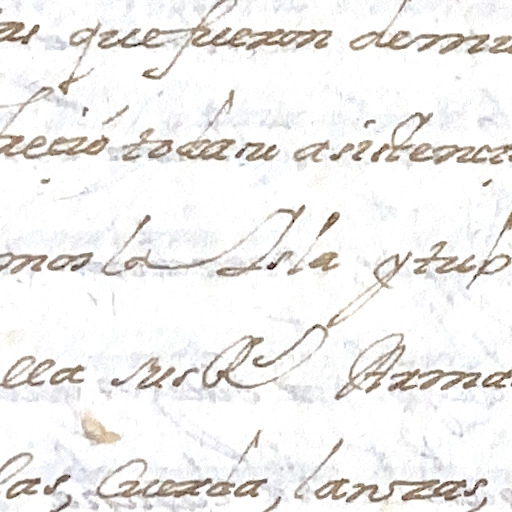 as que fueron demu
recio toda su asistenci
mos la Isla y tub
ella sus Rs Arma
las, Cuerda, lanzas,